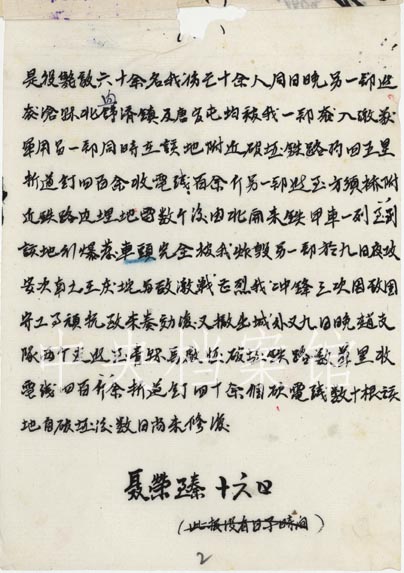 是役毙敌六十余名我伤亡十余人同日晚另一部进
袭沧县北兴济镇及唐官屯均被我一部袭入缴获
军用另一部同时在该地附近破坏铁路约四五里
拆道钉四百余收电线百余斤另一部进至方顺桥附
近铁路边埋地雷数个后由北开来铁甲车一列至到
该地引爆落车头完全被我炸毁另一部于九日夜攻
安次自七至庆坨与敌激战甚烈我冲锋三次因敌固
守工事顽抗致未奏功后又撤出城外又九日晚赵支
队两个连进至望都附近破坏铁路数里收
电线四百斤余拆道钉四十余个砍电线数十根该
地自破坏后数日尚未修复
聂荣臻 十六日
(此报没有日子时间)
2
中央档案馆